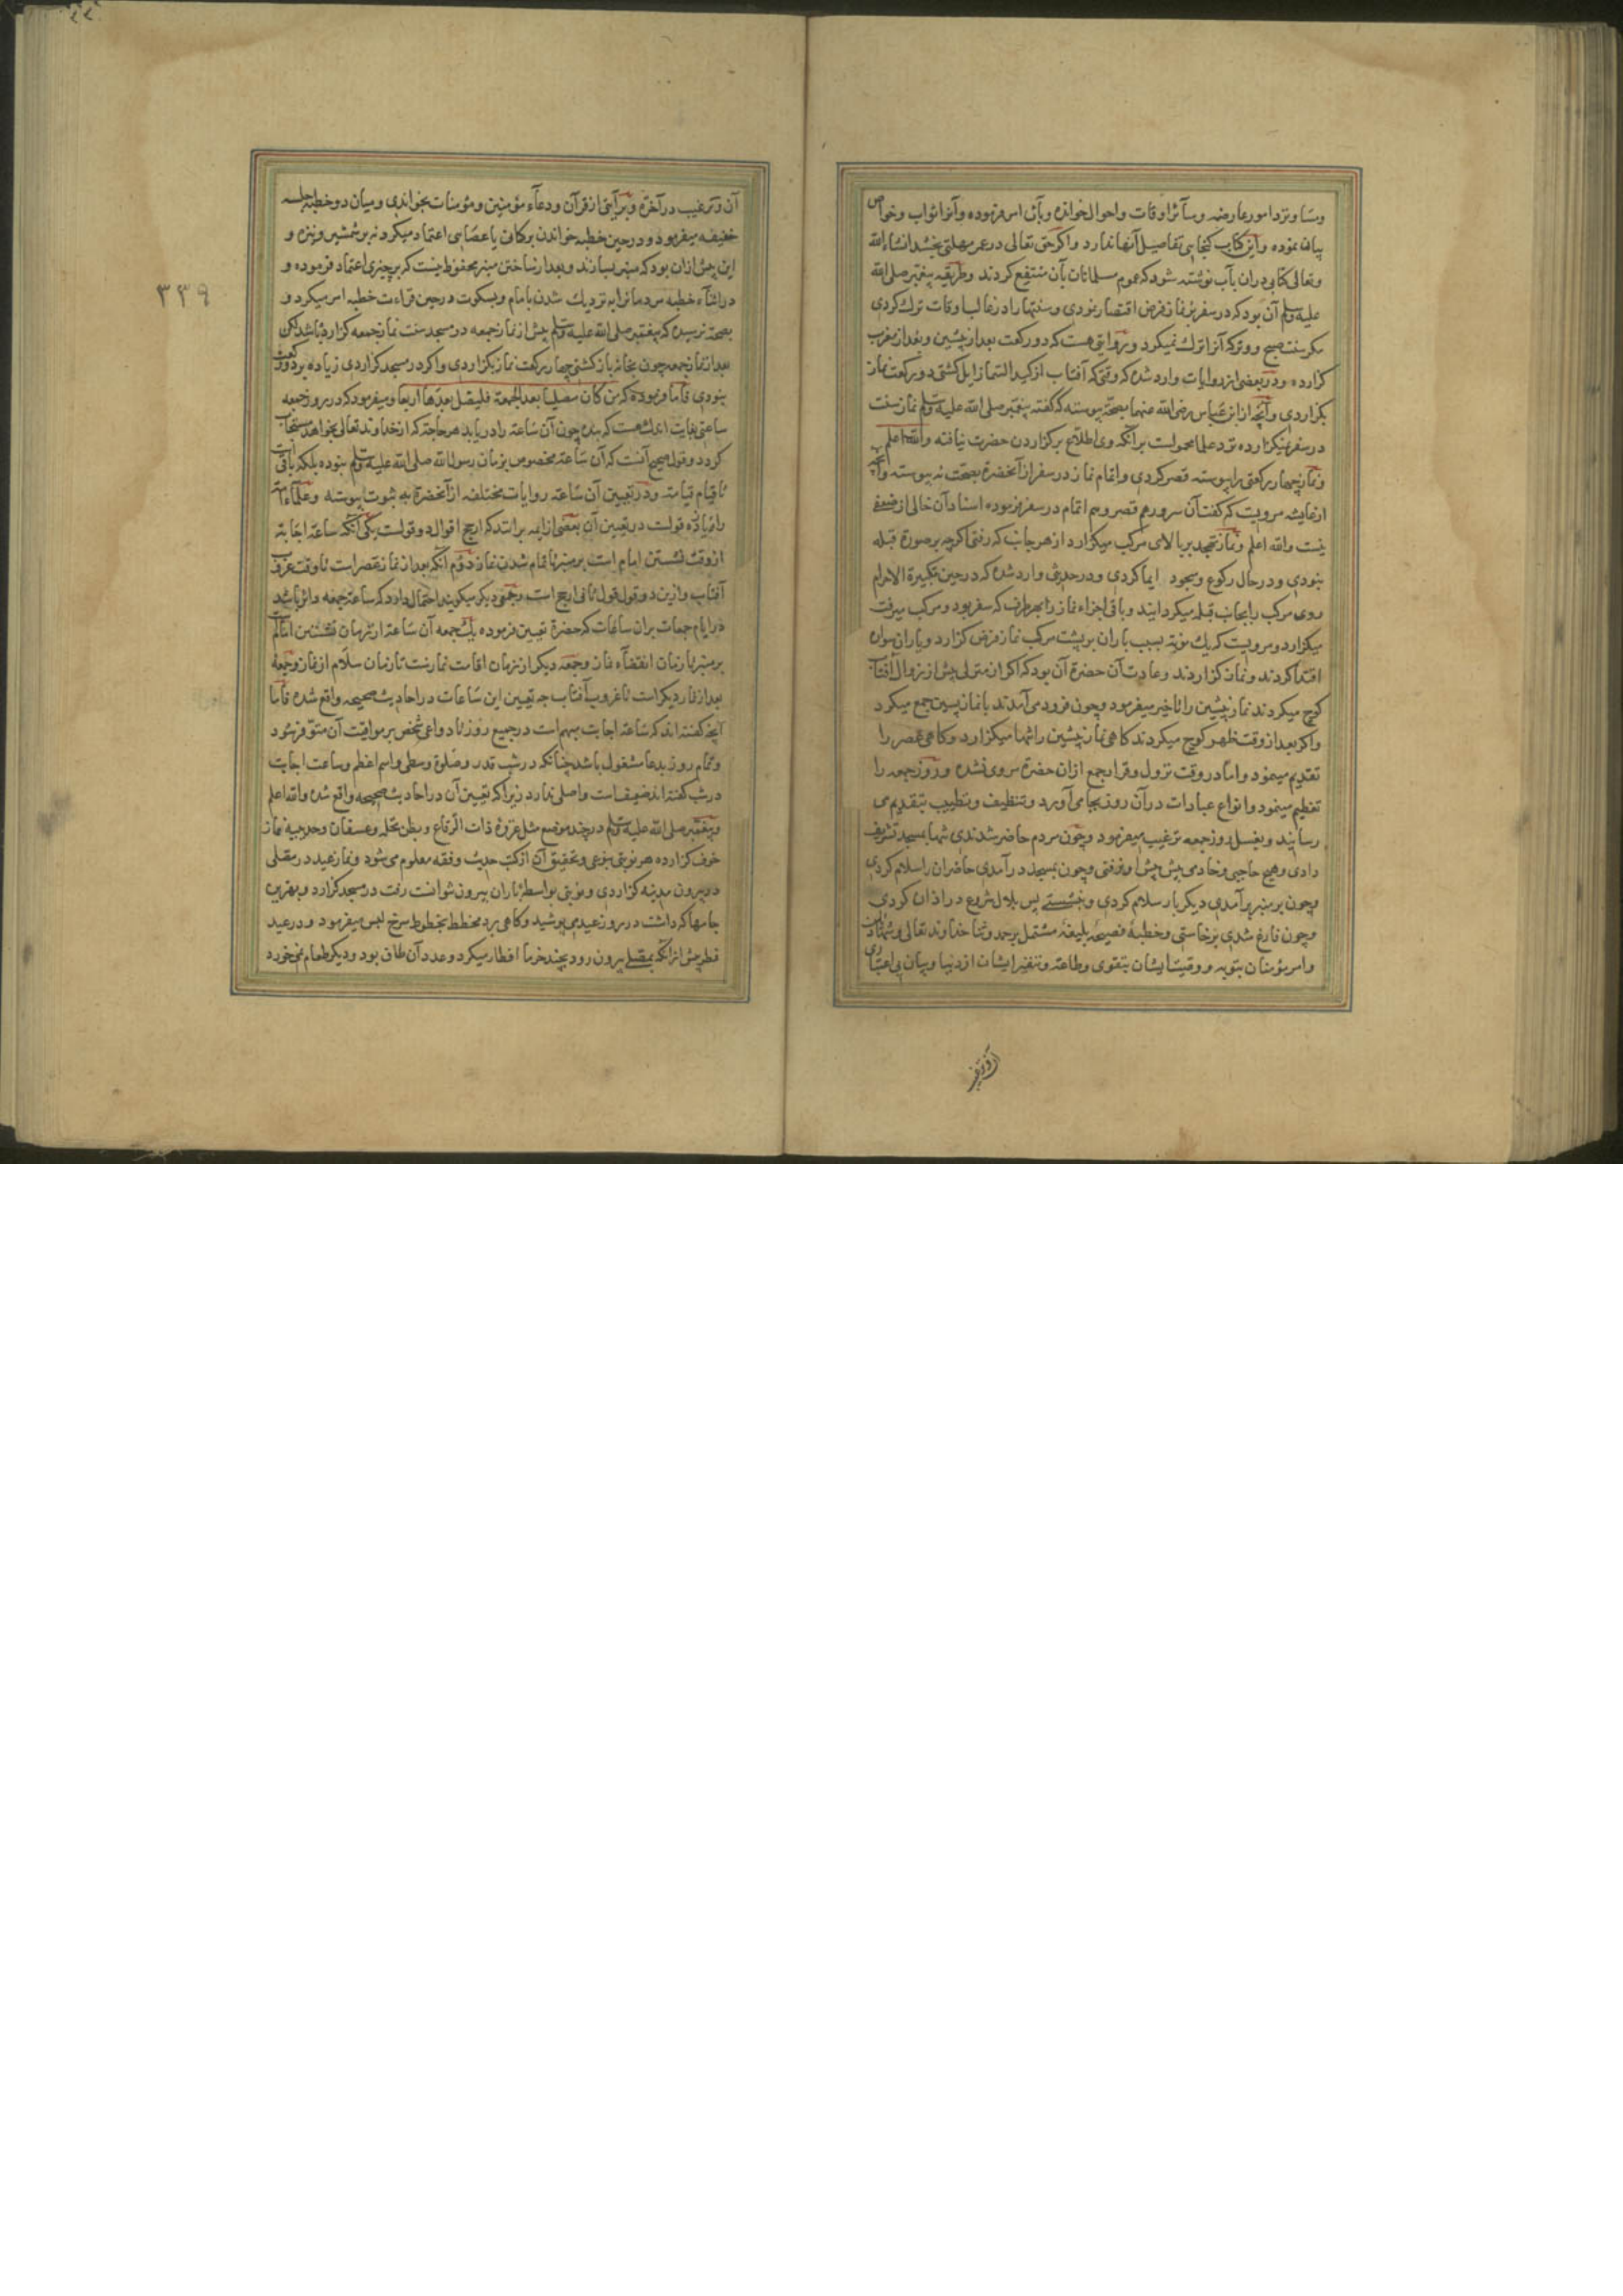 وسا و نزد امور عارضه و سآئر اوقات و احوال خوانده و بآن امر فرموده و آنرا ثواب و خواص
بیان نموده و این کتاب کنجایی تفاصیل آنها ندارد و اکر حق تعالی در عمر مهلتی بخشد انشاء الله
وتعالی کتابی دران باب نوشته شود که عموم مسلمانان بآن منتفع کردند و طریقه پیغمبر صلی الله
علیه وسلم آن بود که در سفر بر نماز فرض اقتصار نمودی و سنتها را در غالب اوقات ترک کردی
مکر سنت صبح و وتر که آنرا ترک نمیکرد و بروایتی هست که دو رکعت بعد از پیشین و بعد از مغرب
کزارده و در بعضی از روایات وارد شده که وقتی که آفتاب از کبد السماء زایل کشتی دو رکعت نماز
بکزاردی و آنچه از ابن عباس رضی الله عنهما بصحة پیوسته که کفته پیغمبر صلی الله علیه وسلم نماز سنت
در سفر نمیکزارده نزد علما محمولست بر آنکه وی اطلاع بر کزاردن حضرت نیافته والله اعلم
و نماز چهار رکعتی را پیوسته قصر کردی و اتمام نماز در سفر از آنحضرة بصحت نه پیوسته و آنچه
از عایشه مرویست که کفت آن سرور هم قصر و هم اتمام در سفر فرموده اسناد آن خالی از ضعفی
نیست والله اعلم و نماز تهجد بر بالای مرکب میکزارد از هر جانب که رفتی اکرچه بر صورة قبله
نبودی و در حال رکوع و سجود ایما کردی و در حدیثی وارد شده که در حین تکبیرة الاحرام
روی مرکب را بجانب قبله میکردانید و باقی اجزاء نماز را بهر طرف که سفر بود و مرکب میرفت
میکزارد و مرویست که یک نوبة بسبب باران بر پشت مرکب نماز فرض کزارد و یاران سواره
اقتدا کردند و نماز کزاردند و عادت آن حضرة آن بود که اکر از منزلی پیش از زوال آفتاب
کوچ میکردند نماز پیشین را تاخیر میفرمود و چون فرود می آمدند با نماز پسین جمع میکرد
واکر بعد از وقت ظهر کوچ میکردند کاهی نماز پیشین را تنها میکزارد و کاهی عصر را
تقدیم مینمود و اما در وقت نزول و قرار جمع ازان حضرة مروی نشده و روز جمعه را
تعظیم مینمود و انواع عبادات در آن روز بجا می آورد و تنظیف و تطییب بتقدیم می
رسانید و بغسل روز جمعه ترغیب میفرمود و چون مردم حاضر شدندی تنها بمسجد تشریف
دادی و هیچ حاجبی و خادمی پیش پیش او نرفتی و چون بمسجد در آمدی حاضران را سلام کردی
و چون بر منبر بر آمدی دیکر بار سلام کردی و بنشستی پس بلال شروع در اذان کردی
و چون فارغ شدی برخاستی و خطبهٔ فصیحهٔ بلیغهٔ مشتمل بر حمد و ثنا خداوند تعالی و شهادتین
وامر مؤمنان بتوبه و وصیت ایشان بتقوی و طاعة و تنفیر ایشان از دنیا و بیان بی اعتباری
آن و ترغیب
آن و ترغیب در آخرة و بر آیتی از قرآن و دعآء مؤمنین و مؤمنات بخواندی و میان دو خطبه جلسه
خفیفه میفرمود و در حین خطبه خواندن بر کمان یا عصایی اعتماد میکرد نه بر شمشیر و نیزه و
این پیش ازان بود که منبر بسازند و بعد از ساختن منبر محفوظ نیست که بر چیزی اعتماد فرموده و
در اثنآء خطبه مردمانرا به نزدیک شدن بامام و بسکوت در حین قراءت خطبه امر میکرد و
بصحة نرسیده که پیغمبر صلی الله علیه وسلم پیش از نماز جمعه در مسجد سنت نماز جمعه کزارده باشد لکن
بعد از نماز جمعه چون بخانه باز کشتی چهار رکعت نماز بکزاردی واکر در مسجد کزاردی زیاده بر دو رکعت
نبودی فاما فرموده که من کان مصلیا بعد الجمعة فلیصل بعدها اربعا و میفرمود که در روز جمعه
ساعتی بغایت اندک هست که بنده چون آن ساعة را دریابد هر حاجة که از خداوند تعالی بخواهد مستجاب
کردد و قول صحیح آنست که آن ساعة مخصوص بزمان رسول الله صلی الله علیه وسلم نبوده بلکه باقیست
تا قیام قیامة و در تعیین آن ساعة روایات مختلفه از آنحضرة به ثبوت پیوسته و علماء امة
را زیاده قولست در تعیین آن بعضی از ایمه برانند که ارجح اقوال دو قولست یکی آنکه ساعة اجابة
از وقت نشستن امام است بر منبر تا تمام شدن نماز دوم آنکه بعد از نماز عصر است تا وقت غروب
آفتاب و ازین دو قول قول ثانی ارجح است و جمعی دیکر میکویند احتمال دارد که ساعة جمعه دایر باشد
در ایام جمعات بران ساعات که حضرة تعیین فرموده یک جمعه آن ساعة از زمان نشستن امام
بر منبر تا زمان انقضآء نماز و جمعه دیکر از زمان اقامت نمازست تا زمان سلام از نماز و جمعهٔ
بعد از نماز دیکر است تا غروب آفتاب چه تعیین این ساعات در احادیث صحیحه واقع شده فاما
آنچه کفته اند که ساعة اجابت مبهم است در جمیع روز تا دواعی شخص بر مواقیت آن متوفر شود
و تمام روز بدعا مشغول باشد چنانکه در شب قدر و صلوة وسطی و اسم اعظم و ساعت اجابت
در شب کفته اند ضعیفست و اصلی ندارد زیرا که تعیین آن در احادیث صحیحه واقع شده والله اعلم
و پیغمبر صلی الله علیه وسلم در چند موضع مثل غزوهٔ ذات الرقاع و بطن نخله و عسفان و حدیبیه نماز
خوف کزارده هر نوبتی بنوعی و تحقیق آن از کتب حدیث و فقه معلوم می شود و نماز عید در مصلی
در بیرون مدینه کزاردی و نوبتی بواسطه باران بیرون نتوانست رفت در مسجد کزارد و بهترین
جامها که داشت در روز عید می پوشید و کاهی برد مخطط بخطوط سرخ لبس میفرمود و در عید
فطر پیش از آنکه بمصلی بیرون رود بچند خرما افطار میکرد و عدد آن طاق بود و دیکر طعام نمیخورد
۳۳۹